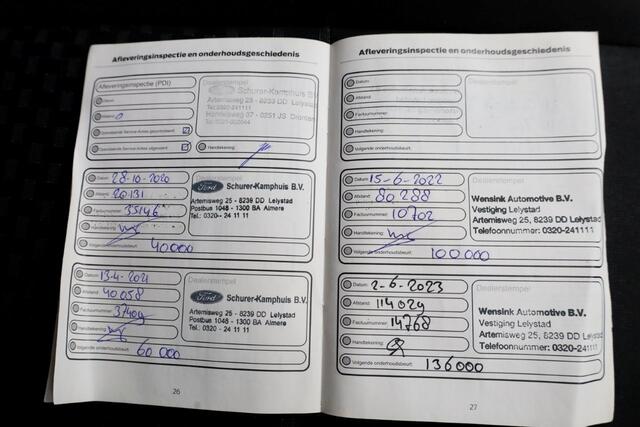 Afleveringsinspectie en onderhoudsgeschiedenis
Afleveringsinspectie (PDI)
Dealerstempel
Schurer-Kamphuis B.V.
Artemisweg 25 - 8239 DD Lelystad
Datum:
Afstand: 0
Openstaande Service Acties gecontroleerd:
Openstaande Service Acties uitgevoerd:
Handtekening:
Datum: 28-10-2020
Afstand: 20131
Factuurnummer: 35146
Handtekening:
Volgende onderhoudsbeurt: 40000
Ford
Schurer-Kamphuis B.V.
Artemisweg 25 - 8239 DD Lelystad
Postbus 1048 - 1300 BA Almere
Tel.: 0320 - 24 11 11
Datum: 13-4-2021
Afstand: 40058
Factuurnummer: 37409
Handtekening:
Volgende onderhoudsbeurt: 60 000
Dealerstempel
Ford
Schurer-Kamphuis B.V.
Artemisweg 25 - 8239 DD Lelystad
Postbus 1048 - 1300 BA Almere
Tel.: 0320 - 24 11 11
26
Afleveringsinspectie en onderhoudsgeschiedenis
Datum:
Afstand:
Factuurnummer:
Handtekening:
Volgende onderhoudsbeurt:
Datum: 15-6-2022
Afstand: 80 288
Factuurnummer: 10702
Handtekening:
Volgende onderhoudsbeurt: 100 000
Wensink Automotive B.V.
Vestiging Lelystad
Artemisweg 25, 8239 DD Lelystad
Telefoonnummer: 0320-241111
Datum: 2-6-2023
Afstand: 114029
Factuurnummer: 14768
Handtekening:
Volgende onderhoudsbeurt: 136000
Dealerstempel
Wensink Automotive B.V.
Vestiging Lelystad
Artemisweg 25, 8239 DD Lelystad
Telefoonnummer: 0320-241111
27